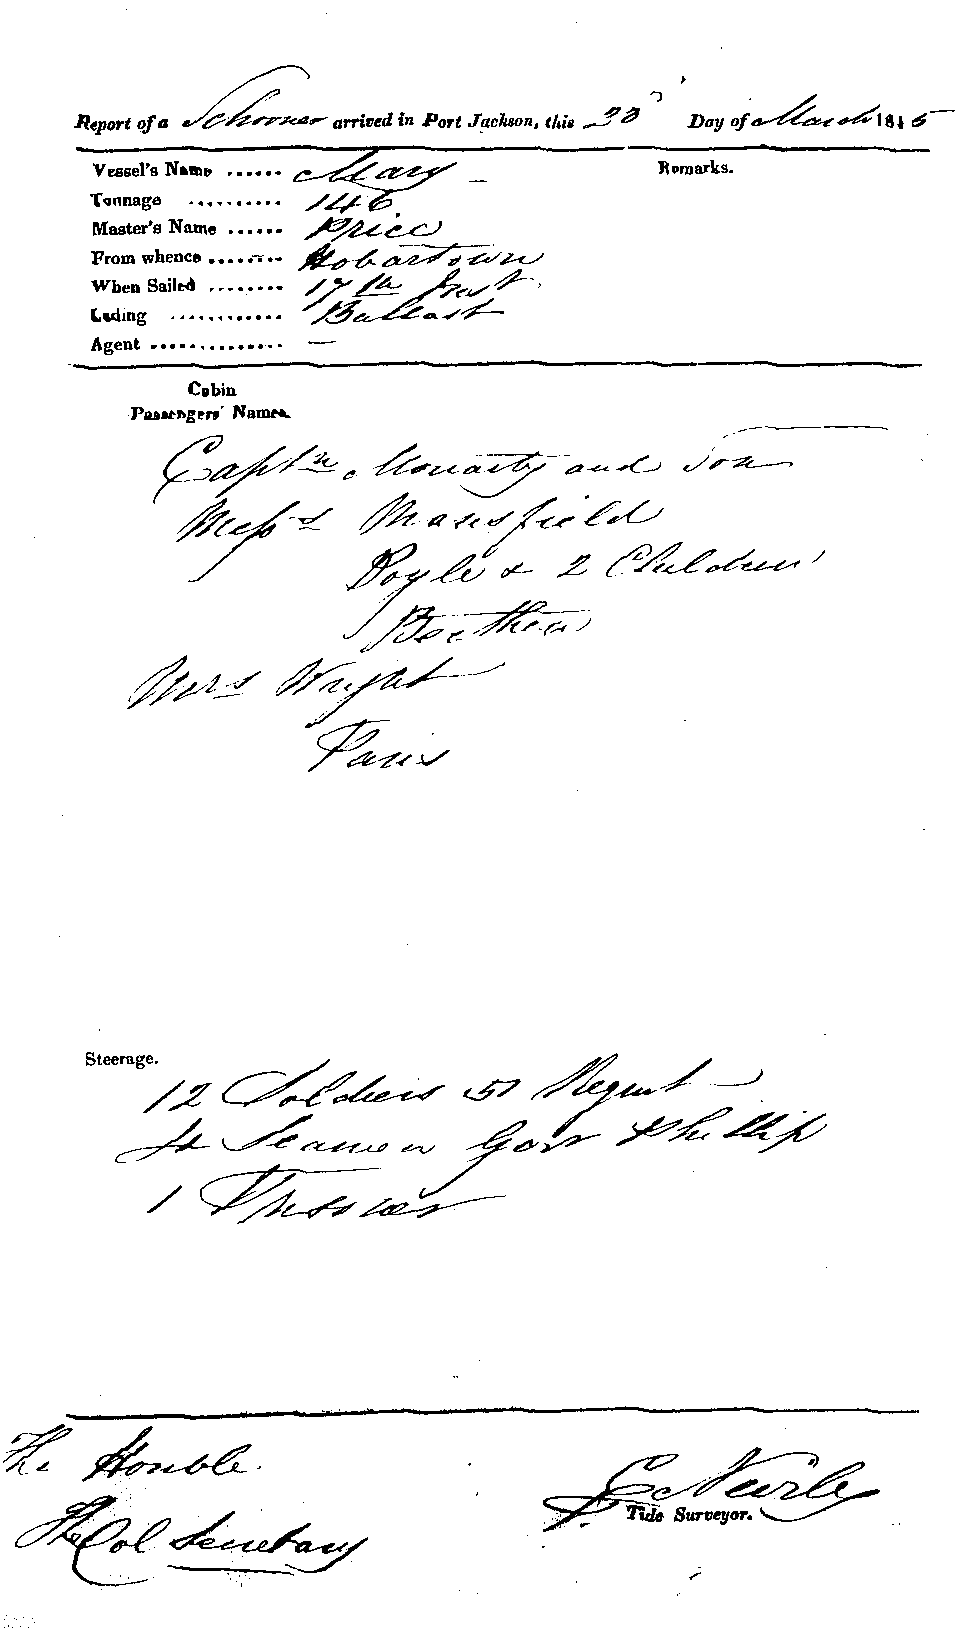 Report of a Schooner arrived in Port Jackson, this 23 Day of March 1845
Vessel's Name ...... Mary
Remarks.
Tonnage .......... 146
Master's Name ...... Price
From whence ........ Hobartown
When Sailed ........ 17th Inst
Lading ............ Ballast
Agent .............. —
Cabin
Passengers' Names.
Captn Moriarty and Son
Messrs Mansfield
Doyle & 2 Children
Mrs Wright
Paris
Steerage.
12 Soldiers 51 Regmt
Seamen Govr Phillip
1
The Honble.
The Col Secretary
Tide Surveyor.